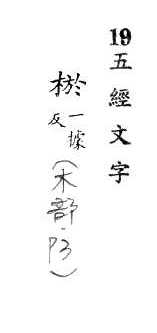 19五經文字
棜一據反(木部·P3)